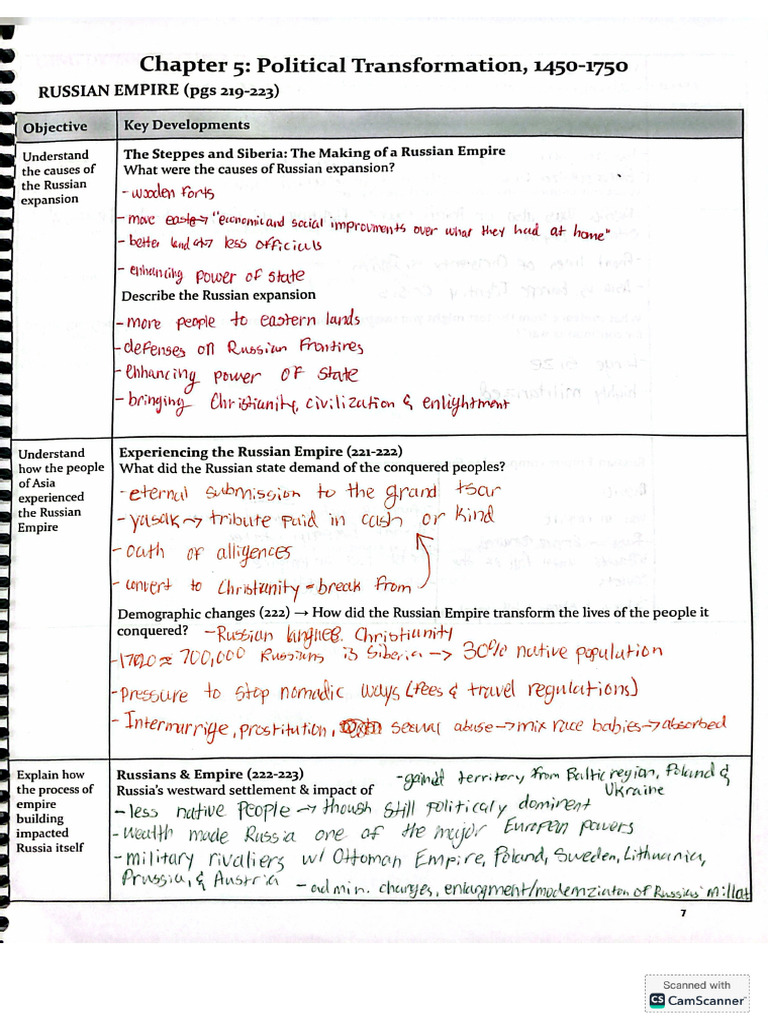 Chapter 5: Political Transformation, 1450-1750
RUSSIAN EMPIRE (pgs 219-223)
Objective
Key Developments
Understand
the causes of
the Russian
expansion
The Steppes and Siberia: The Making of a Russian Empire
What were the causes of Russian expansion?
- wooden forts
- move east → "economic and social improvments over what they had at home"
- better land → less officials
- enhancing power of state
Describe the Russian expansion
- more people to eastern lands
- defenses on Russian Frontires
- enhancing power of state
- bringing Christianity, civilization & enlightment
Understand
how the people
of Asia
experienced
the Russian
Empire
Experiencing the Russian Empire (221-222)
What did the Russian state demand of the conquered peoples?
- eternal submission to the grand tsar
- yasak → tribute paid in cash or kind
- oath of alligences
- convert to Christianity = break from
Demographic changes (222) → How did the Russian Empire transform the lives of the people it
conquered?
- Russian langueg. Christianity
- 1720 ≈ 700,000 Russians is Siberia → 30% native population
- Pressure to stop nomadic ways (fees & travel regulations)
- Intermurrige, prostitution, sexual abuse → mix race babies → absorbed
Explain how
the process of
empire
building
impacted
Russia itself
Russians & Empire (222-223)
Russia's westward settlement & impact of
- gained territory from Baltic region, Poland &
Ukraine
- less native people → though still politicaly dominent
- Wealth made Russia one of the major European powers
- military rivaliers w/ Ottoman Empire, Poland, Sweden, Lithuania,
Prussia, & Austria
- admin. changes, enlargment/modernziaton of Russias' millat
7
Scanned with
CS CamScanner